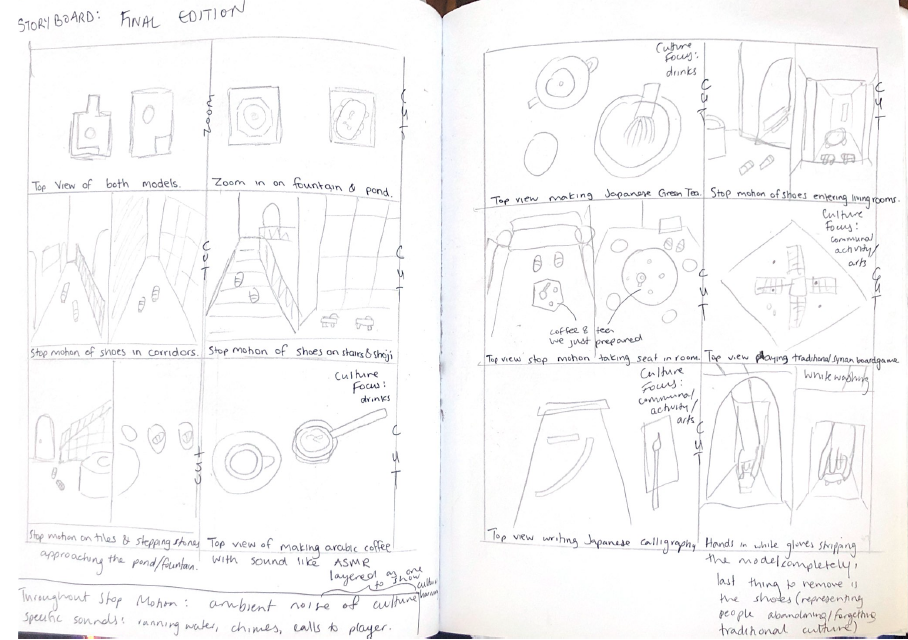 STORYBOARD: FINAL EDITION
Zoom
Cut
Top View of both models.
Zoom in on fountain & pond.
Cut
Cut
Stop motion of shoes in corridors.
Stop motion of shoes on stairs & shoji
Culture
Focus:
drinks
Cut
Cut
Stop motion on tiles & stepping stones
approaching the pond/fountain.
Top view of making arabic coffee
with sound like ASMR
layered as one
to show
culture
Throughout Stop Motion: ambient noise of culture
specific sounds: running water, chimes, calls to player.
Culture
Focus:
drinks
Cut
Cut
Top view making Japanese Green Tea.
Stop motion of shoes entering living rooms.
Culture
Focus:
communal
activity/
arts
Cut
Cut
coffee & tea
we just prepared
Top view stop motion taking seat in room.
Top view playing traditional Syrian boardgame
Culture
Focus:
communal
activity/
arts
Cut
White washing
Top view writing Japanese calligraphy
Hands in white gloves stripping
the model completely,
last thing to remove is
the shoes (representing
people abandoning/forgetting
traditional culture)